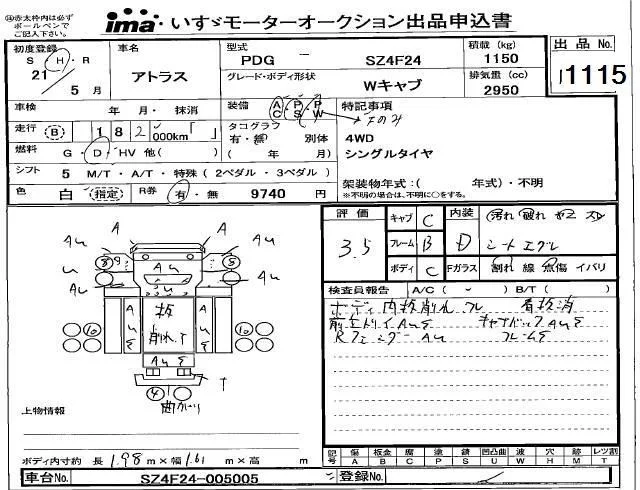 ①赤太枠内は必ず
ボールペンで
ご記入下さい。
ima いすゞモーターオークション出品申込書
初度登録
S・H・R
21年 5月
車名
アトラス
型式
PDG － SZ4F24
グレード・ボディ形状
Wキャブ
積載 (kg)
1150
排気量 (cc)
2950
出品 No.
1115
車検 年・月・抹消
走行 B 182 000km「 」
燃料 G・D・HV 他( )
シフト 5 M/T・A/T・特殊 (2ペダル・3ペダル)
色 白 (指定) R券 有・無 9740 円
装備 AC PS PW
エのみ
タコグラフ
有・無 別体
( 年 月)
特記事項
4WD
シングルタイヤ
架装物年式：( 年式)・不明
※不明の場合は、不明に○をする。
評価
3.5
キャブ C
フレーム B
ボディ C
内装 D
Fガラス
汚れ 破れ
シート
割れ 線 点傷 イバリ
検査員報告 A/C ( ) B/T ( )
ボディ内板削れ 看板消
R フェンダー AU
A
A
AU
AU
U
AU
AU
8
9
8
AU
A
U
S
板
削れT
A
U
S
10
10
AUS
T
4
曲がり
上物情報
ボディ内寸約 長 1.98 m×幅 1.61 m×高 m
記号 傷 A 板金 B 腐 C 塗 P 錆 S 凹凸曲 U 波 W 穴 H 跡 M レツ割 T
車台No. SZ4F24-005005 登録No.